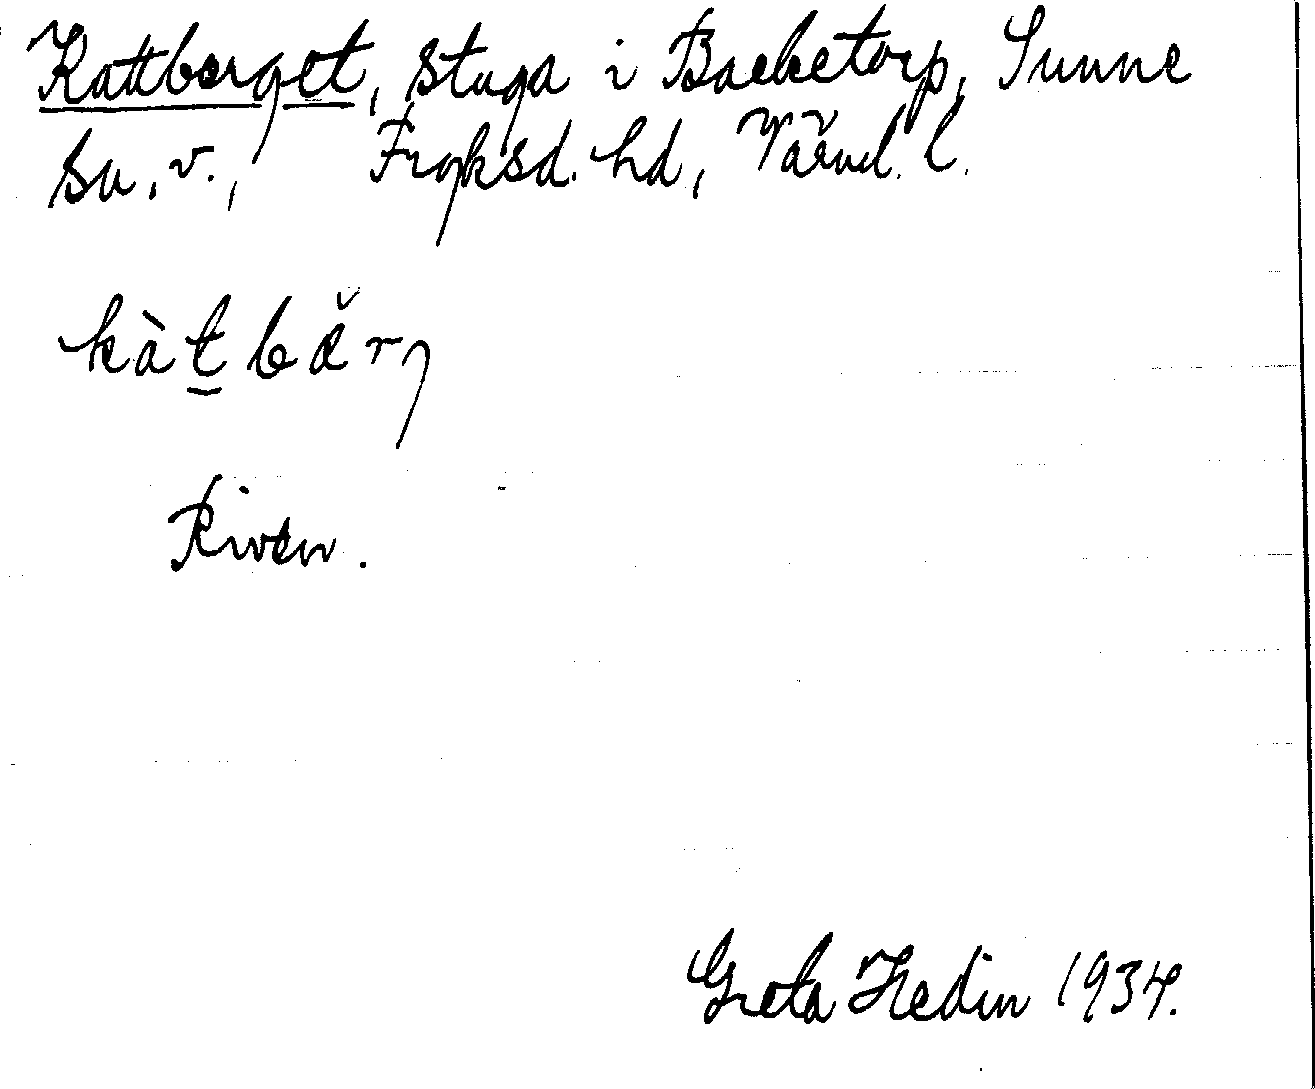 Kattberget, stuga i Backetorp, Sunne
sn. v., Fryksd. hd, Värml. l.
kàt̲bä̌rj
Riven.
Greta Hedin 1934.